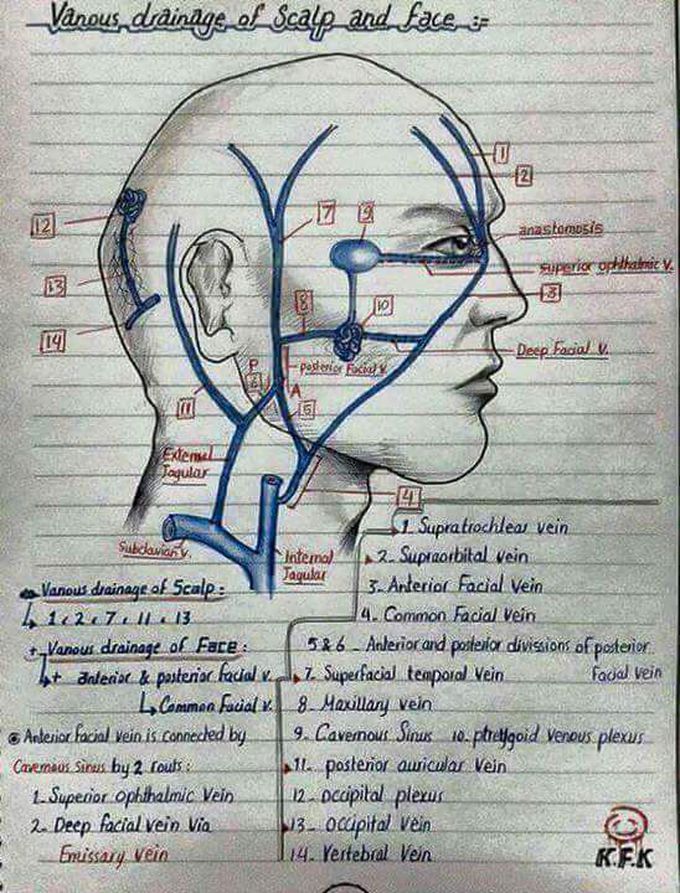 Vanous drainage of Scalp and face :-
1
2
7
9
12
anastomosis
superior ophthalmic v.
13
3
8
10
14
Deep Facial v.
posterior Facial v.
P
6
A
11
5
External
Jagular
4
Subclavian v.
Internal
Jagular
1. Supratrochlear vein
2. Supraorbital vein
3. Anterior Facial Vein
4. Common Facial Vein
5 & 6 - Anterior and posterior divissions of posterior
Facial vein
7. Superfacial temporal Vein
8. Maxillary vein
9. Cavernous Sinus 10. ptreygoid venous plexus
11. posterior auricular Vein
12- occipital plexus
13- occipital Vein
14- Vertebral Vein
Vanous drainage of Scalp :
1, 2, 7, 11, 13
+ Vanous drainage of Face :
+ anterior & posterior facial v.
Common Facial v.
Anterior facial vein is connected by
Cavernous Sinus by 2 routs :
1. Superior ophthalmic Vein
2- Deep facial vein Via
Emissary Vein
K.F.K